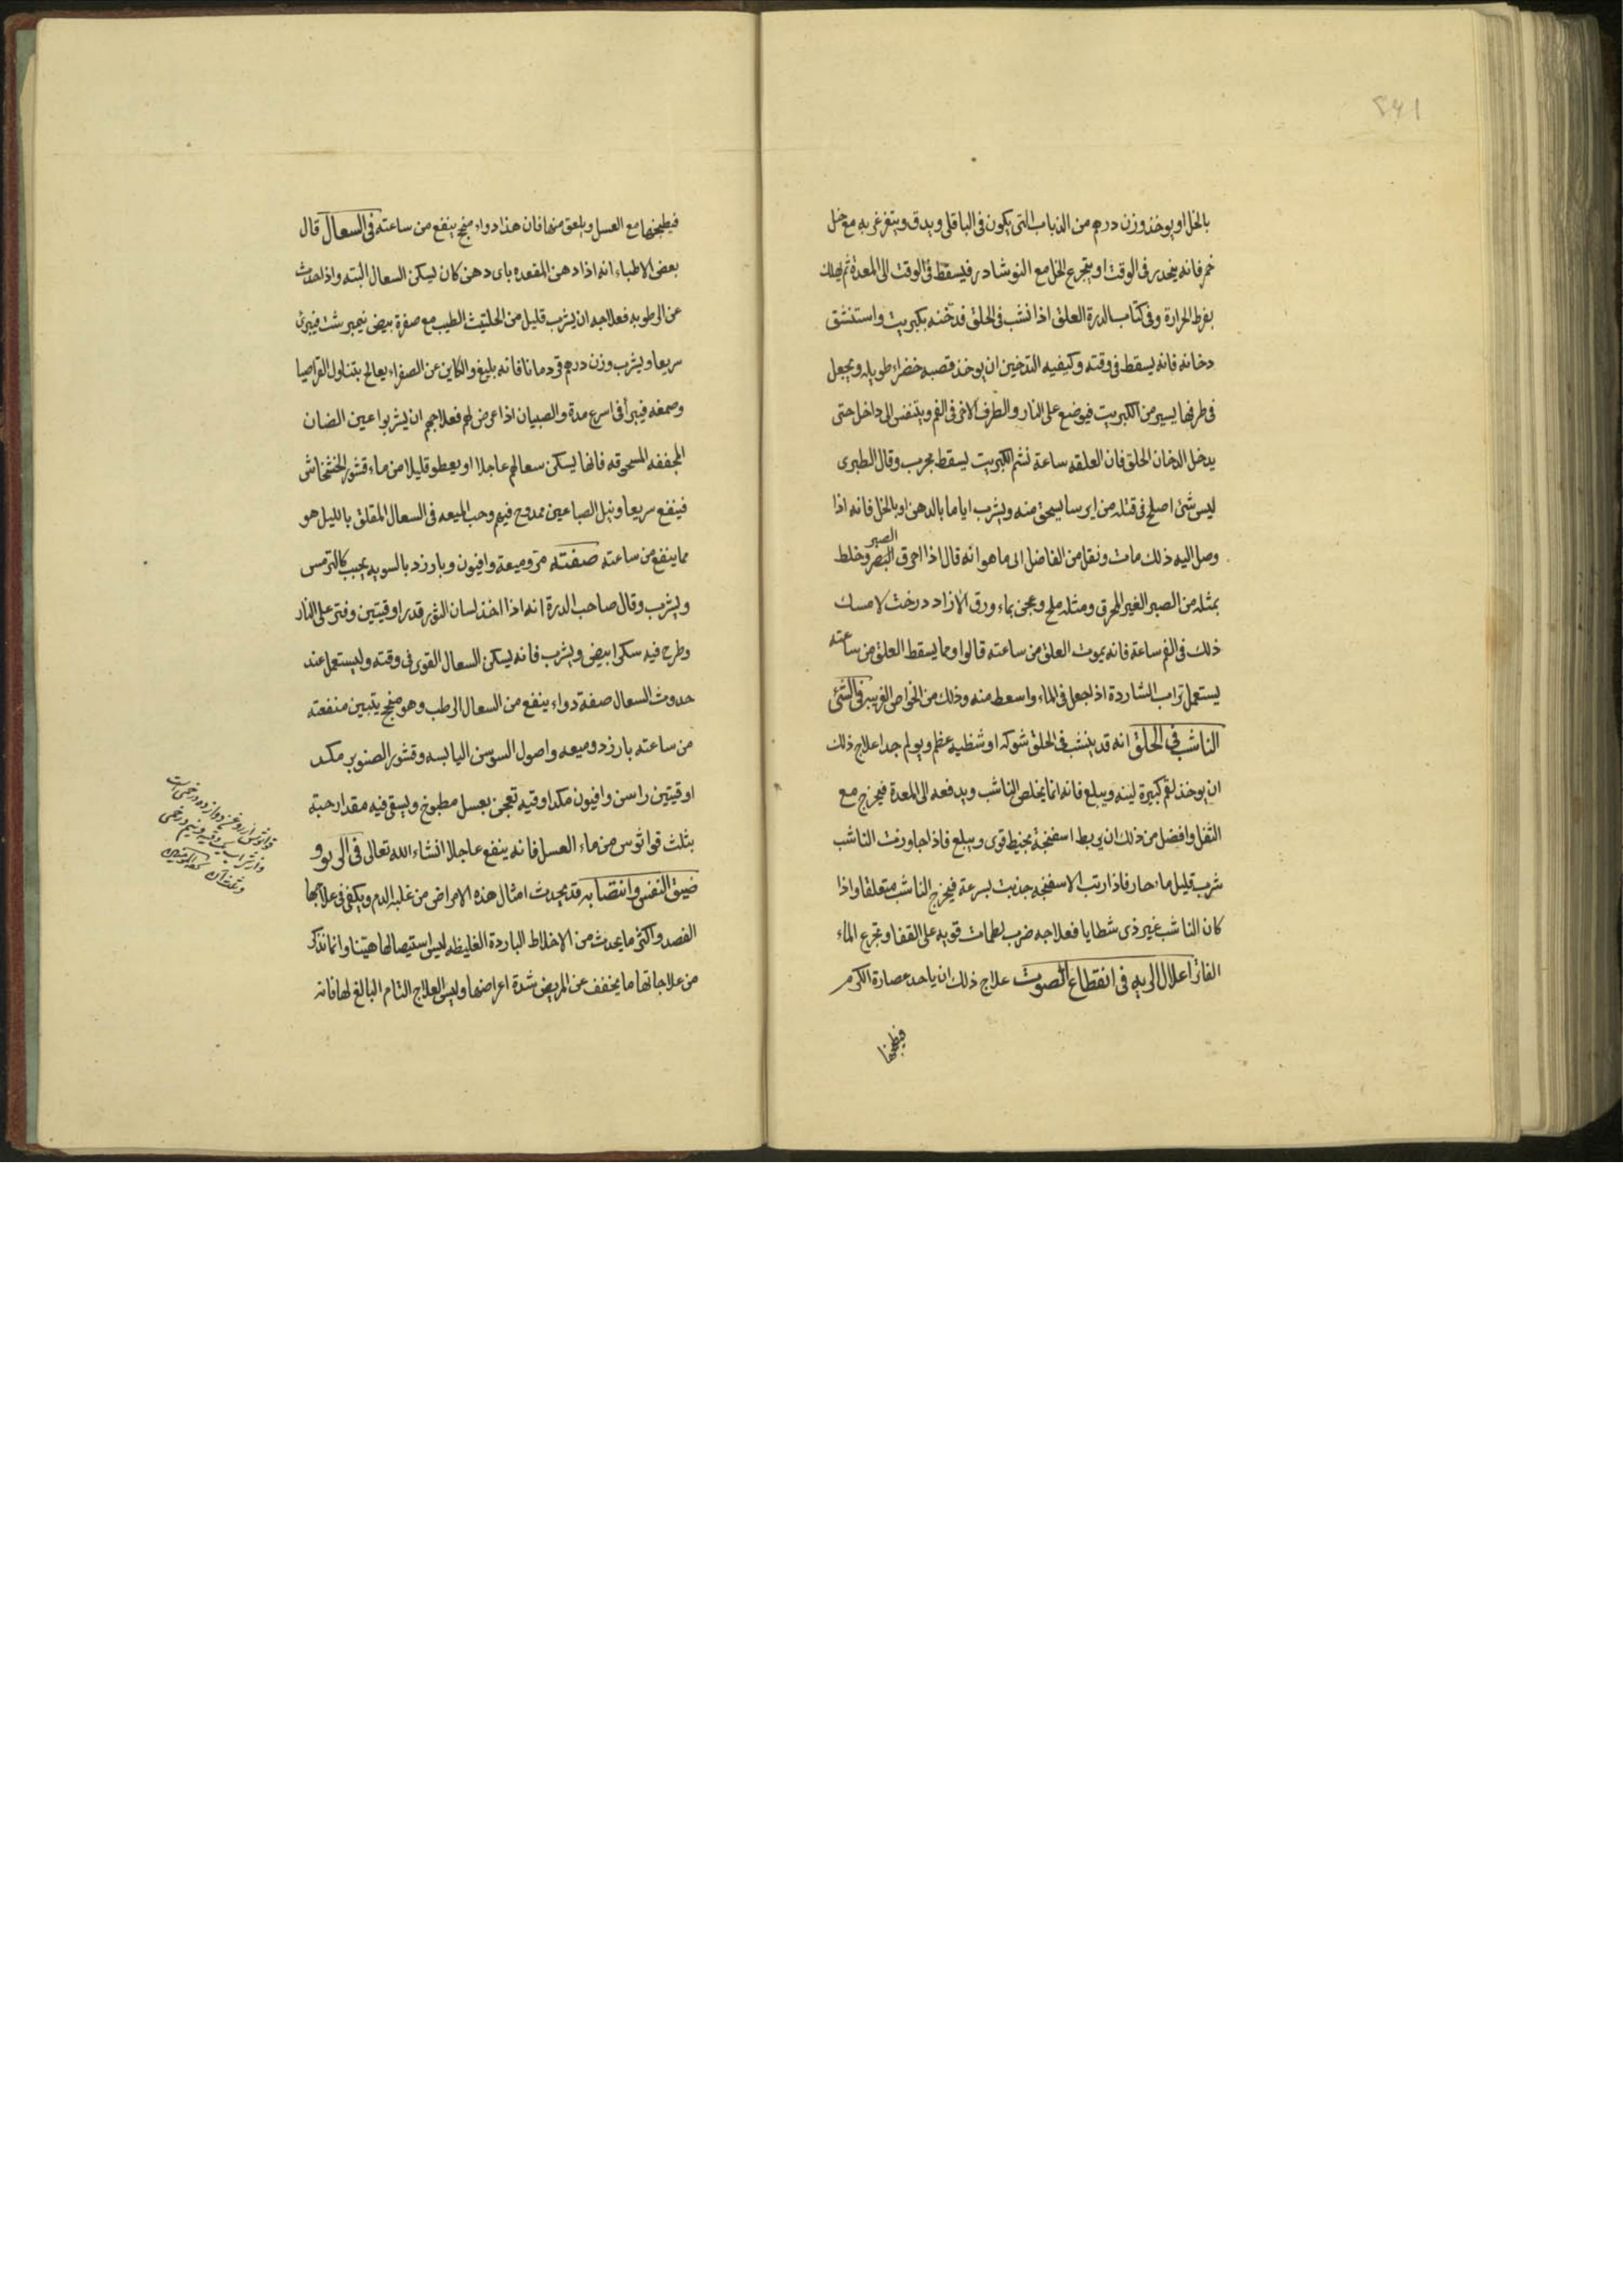 ٢٤١
بالخل او يوخذ وزن درهم من الذباب التى يكون فى الباقلى ويدق ويتغرغر به مع خل
خمر فانه ينحدر فى الوقت او يتجرع الخل مع النوشادر فيسقط فى الوقت الى المعدة ثم يهلك
بفرط الحرارة وفى كتاب الدرة العلق اذا نشب فى الحلق فدخنه بكبريت واستنشق
دخانه فانه يسقط فى وقته وكيفيه التدخين ان يوخذ قصبه خضراء طويله ويجعل
فى طرفها يسير من الكبريت فيوضع على النار والطرف الاخر فى الفم ويتنفس الى داخل حتى
يدخل الدخان الحلق فان العلقه ساعة تشم الكبريت يسقط مجرب وقال الطبرى
ليس شئ اصلح فى قتله من ايرسا يسحق منه ويشرب اياما بالدهن او بالخل فانه اذا
وصل اليه ذلك مات ونقل من الفاضل الى ما هو انه قال اذا احرق البصر وخلط
الصبر
بمثله من الصبر الغير المحرق ومثله ملح وعجن بماء ورق الازاد درخت لامسك
ذلك فى الفم ساعة فانه يموت العلق من ساعته قالوا ومما يسقط العلق من ساعته
يستعمل تراب الشاردة اذا جعل فى الماء واسعط منه وذلك من الخواص الغريبه فى الشئ
الناشب فى الحلق انه قد ينشب فى الحلق شوكه او شظيه عظم ويولم جدا علاج ذلك
ان يوخذ لقم كبيرة لينه ويبلع فانه انما يخلص الناشب ويدفعه الى المعدة فيخرج مع
الثفل وافضل من ذلك ان يربط اسفنجة بخيط قوى ويبلع فاذا جاوزت الناشب
شرب قليل ماء حار فاذا ربت الاسفنجه جذبت بسرعة فيخرج الناشب متعلقا واذا
كان الناشب غير ذى شظايا فعلاجه ضرب لطمات قويه على القفا وتجرع الماء
الفاتر اعلال الريه فى انقطاع الصوت علاج ذلك ان ياخد عصارة الكرم
فيطبخها
فيطبخها مع العسل ويلعق منها فان هذا دواء منجح ينفع من ساعته فى السعال قال
بعض الاطباء انه اذا دهن المقعده باى دهن كان ليسكن السعال البته واذا حدث
عن الرطوبه فعلاجه ان يشرب قليل من الحلتيث الطيب مع صفرة بيض نيمبرشت فيبرئ
سريعا ويشرب وزن درهم قردمانا فانه بليغ والكاين عن الصفراء يعالج بتناول القراصيا
وصمغه فيبرأ فى اسرع مدة والصبيان اذا عرض لهم فعلاجهم ان يشربوا عين الضان
المجففه المسحوقه فانها يسكن سعالهم عاجلا او يعطو قليلا من ماء قشور الخشخاش
فينفع سريعا ونيل الصباغين ممدوح فيهم وحب الميعه فى السعال المقلق بالليل هو
مما ينفع من ساعته صفته مر وميعة وافيون وبارزد بالسويه يحبب كالترمس
ويشرب وقال صاحب الدرة انه اذا اخذ لسان الثور قدر اوقيتين وفتر على النار
وطرح فيه سكر ابيض ويشرب فانه يسكن السعال القوى فى وقته وليستعمل عند
حدوث السعال صفة دواء ينفع من السعال الرطب وهو منجح يتبين منفعته
من ساعته بارزد وميعه واصول السوسن اليابسه وقشور الصنوبر مكد
اوقيتين راسن وافيون مكد اوقيه تعجن بعسل مطبوخ ويسقى فيه مقدار حبة
بثلث قواثوس من ماء العسل فانه ينفع عاجلا انشاء الله تعالى فى الربو و
ضيق النفس وانتصابه قد يحدث امثال هذه الامراض من غلبه الدم ويكفى فى علاجها
الفصد واكثر ما يحدث من الاخلاط الباردة الغليظه ليس استيصالها هينا وانما نذكر
من علاجاتها ما يخفف عن المريض شدة اعراضها وليس العلاج التام البالغ لها فانه
قواثوس از روغن دوازده درخمى است
واز شراب يك وقيه ونيم درخمى